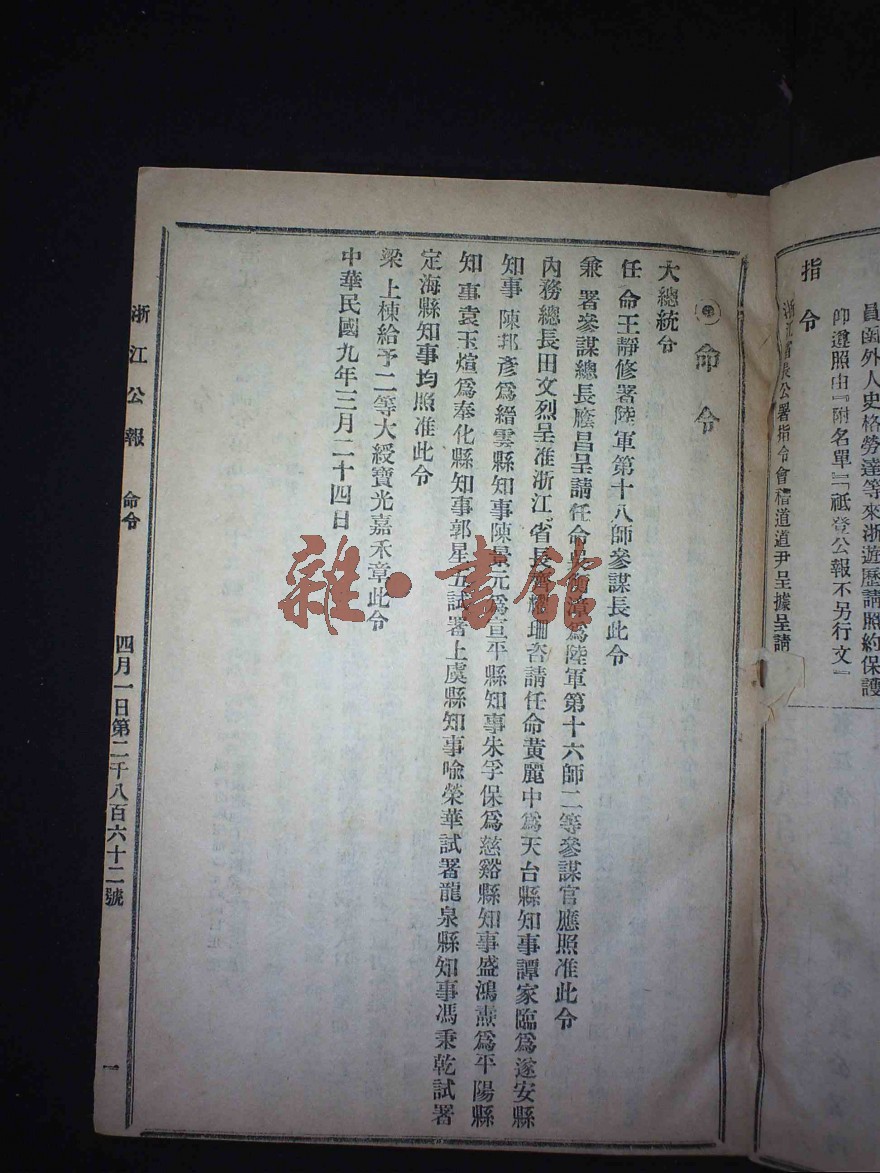 員函外人史格勞達等來浙遊歷請照約保護
卽遵照由『附名單』『祇登公報不另行文』
指令
浙江省長公署指令會稽道道尹呈據呈請
命令
大總統令
任命王靜修署陸軍第十八師參謀長此令
兼署參謀總長蔭昌呈請任命漳爲陸軍第十六師二等參謀官應照准此令
內務總長田文烈呈准浙江省長齊耀珊咨請任命黃麗中爲天台縣知事譚家臨爲遂安縣
知事陳邦彥爲縉雲縣知事陳景元爲宣平縣知事朱孚保爲慈谿縣知事盛鴻燾爲平陽縣
知事袁玉煊爲奉化縣知事郭星五試署上虞縣知事喩榮華試署龍泉縣知事馮秉乾試署
定海縣知事均照准此令
梁上棟給予二等大綬寶光嘉禾章此令
中華民國九年三月二十四日
浙江公報 命令 四月一日第二千八百六十二號 一
雜·書館